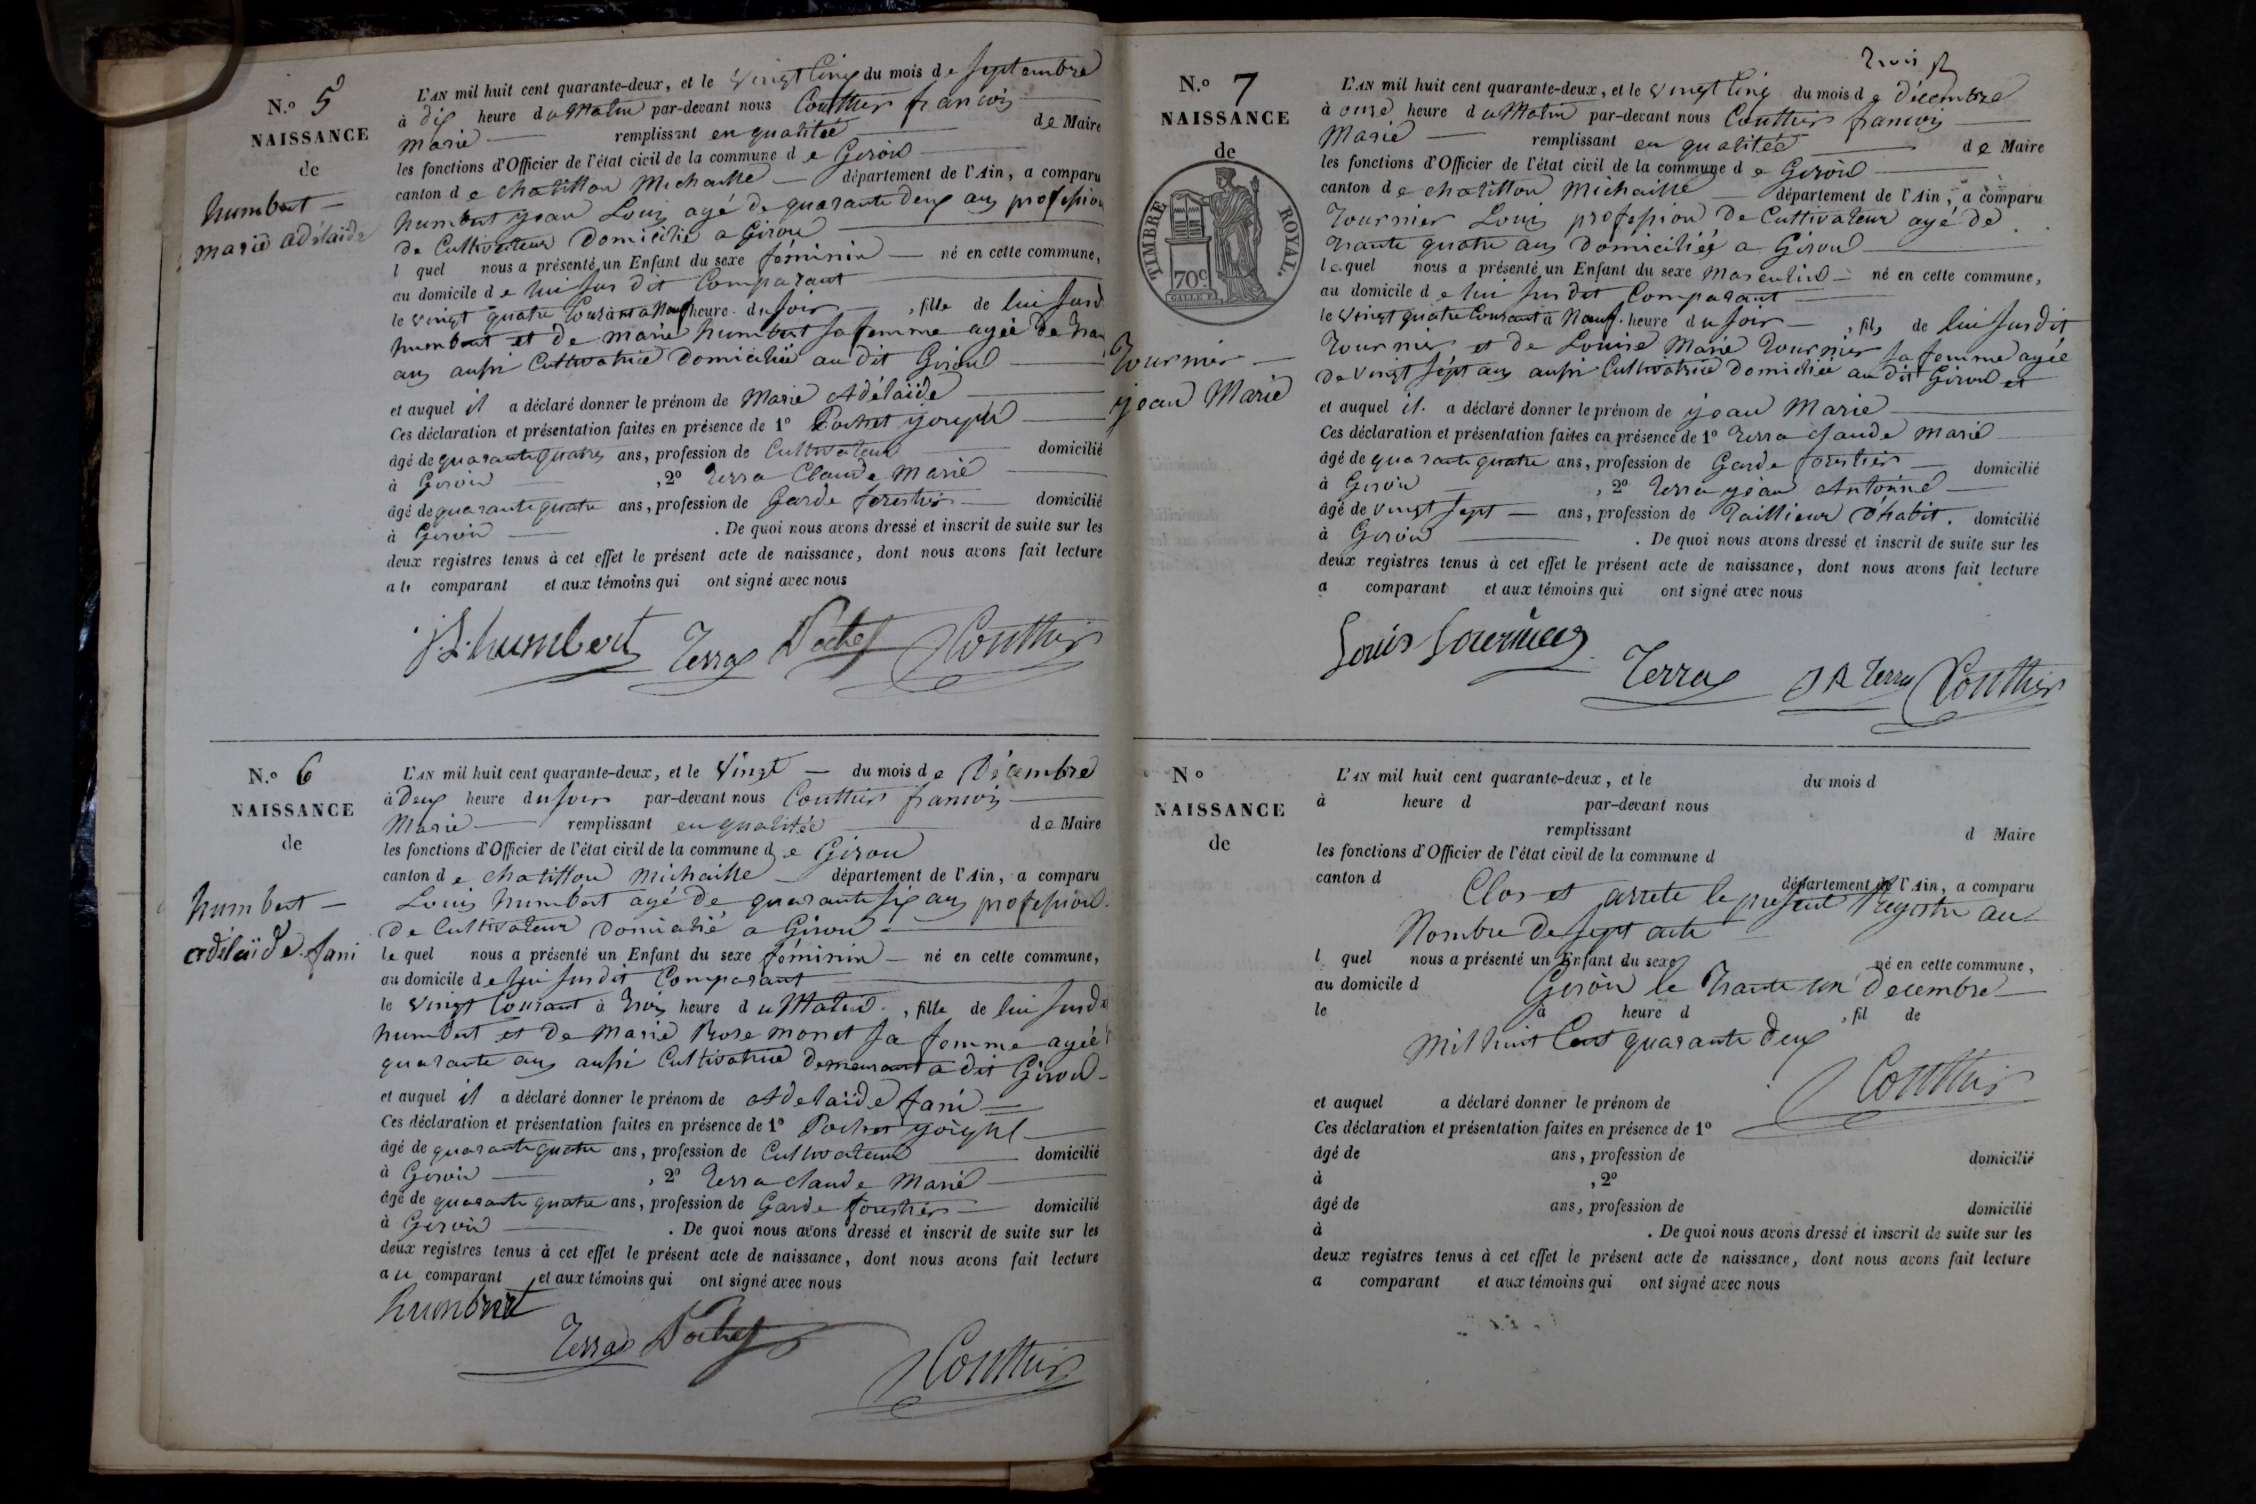 N.o 5
NAISSANCE
de
humbert
marie adélaïde
L'AN mil huit cent quarante-deux, et le vingt cinq du mois de septembre
à dix heure du Matin par-devant nous Coutthier francois
Marie remplissant en qualitée de Maire
les fonctions d'Officier de l'état civil de la commune de Giron
canton de chatillon Michaille département de l'Ain, a comparu
humbert jean Louis agé de quarante deux ans profession
de Cultivateur Domicilié a Giron
l quel nous a présenté un Enfant du sexe féminin né en cette commune,
au domicile de lui sus dit Comparant
le vingt quatre Courant a Neuf heure du soir, fille de lui susd
humbert et de Marie humbert sa femme agée de
ans aussi Cultivatrice Domiciliée au dit Giron
et auquel il a déclaré donner le prénom de Marie Adélaïde
Ces déclaration et présentation faites en présence de 1o Pochet joseph
âgé de quarante quatres ans, profession de Cultivateur domicilié
à Giron, 2o Terra Claude Marie
âgé de quarante quatre ans, profession de Garde forestier domicilié
à Giron . De quoi nous avons dressé et inscrit de suite sur les
deux registres tenus à cet effet le présent acte de naissance, dont nous avons fait lecture
a le comparant et aux témoins qui ont signé avec nous
J. L. humbert Terra Pochet Coutthier
N.o 6
NAISSANCE
de
humbert
adélaïde fani
L'AN mil huit cent quarante-deux, et le vingt du mois de Décembre
à Deux heure du soir par-devant nous Coutthier francois
Marie remplissant en qualitée de Maire
les fonctions d'Officier de l'état civil de la commune de Giron
canton de chatillon Michaille département de l'Ain, a comparu
Louis humbert agé de quarante six ans profession
de Cultivateur Domicilié a Giron
le quel nous a présenté un Enfant du sexe féminin né en cette commune,
au domicile de lui sus dit Comparant
le vingt Courant à trois heure du Matin, fille de lui susdi
humbert et de Marie Rose monet sa femme agée
quarante ans aussi Cultivatrice demeurant a dit Giron
et auquel il a déclaré donner le prénom de Adelaïde fani
Ces déclaration et présentation faites en présence de 1o Pochet joseph
âgé de quarante quatre ans, profession de Cultivateur domicilié
à Giron, 2o Terra claude Marie
âgé de quarante quatre ans, profession de Garde forestier domicilié
à Giron . De quoi nous avons dressé et inscrit de suite sur les
deux registres tenus à cet effet le présent acte de naissance, dont nous avons fait lecture
au comparant et aux témoins qui ont signé avec nous
humbert
Terra Pochet
Coutthier
trois
N.o 7
NAISSANCE
de
TIMBRE ROYAL.
70c
Tournier
jean Marie
L'AN mil huit cent quarante-deux, et le vingt cinq du mois de décembre
à onze heure du Matin par-devant nous Coutthier francois
Marie remplissant en qualitée de Maire
les fonctions d'Officier de l'état civil de la commune de Giron
canton de chatillon Michaille département de l'Ain, a comparu
Tournier Louis profession de Cultivateur agé de
trante quatre ans Domiciliée a Giron
lequel nous a présenté un Enfant du sexe Masculin né en cette commune,
au domicile de lui sus dit Comparant
le vingt quatre Courant à Neuf heure du soir, fils de lui susdit
Tournier et de Louise Marie Tournier sa femme agée
de vingt sept ans aussi Cultivatrice domicliée au dit Giron et
et auquel il a déclaré donner le prénom de jean Marie
Ces déclaration et présentation faites en présence de 1o Terra claude Marie
âgé de quarante quatre ans, profession de Garde forestier domicilié
à Giron, 2o Terra jean Antoine
âgé de vingt sept ans, profession de Taillieur d'habit. domicilié
à Giron . De quoi nous avons dressé et inscrit de suite sur les
deux registres tenus à cet effet le présent acte de naissance, dont nous avons fait lecture
a comparant et aux témoins qui ont signé avec nous
Louis Tournier
Terra J A Terra Coutthier
No
NAISSANCE
de
L'AN mil huit cent quarante-deux, et le du mois d
à heure d par-devant nous
remplissant d Maire
les fonctions d'Officier de l'état civil de la commune d
canton d département de l'Ain, a comparu
Clos et arrete le present Registre au
Nombre de sept acte
l quel nous a présenté un Enfant du sexe né en cette commune,
au domicile d
Giron le trante un Decembre
le à heure d , fil de
mil huit Cent quarante deux
Coutthier
et auquel a déclaré donner le prénom de
Ces déclaration et présentation faites en présence de 1o
âgé de ans, profession de domicilié
à , 2o
âgé de ans, profession de domicilié
à . De quoi nous avons dressé et inscrit de suite sur les
deux registres tenus à cet effet le présent acte de naissance, dont nous avons fait lecture
a comparant et aux témoins qui ont signé avec nous